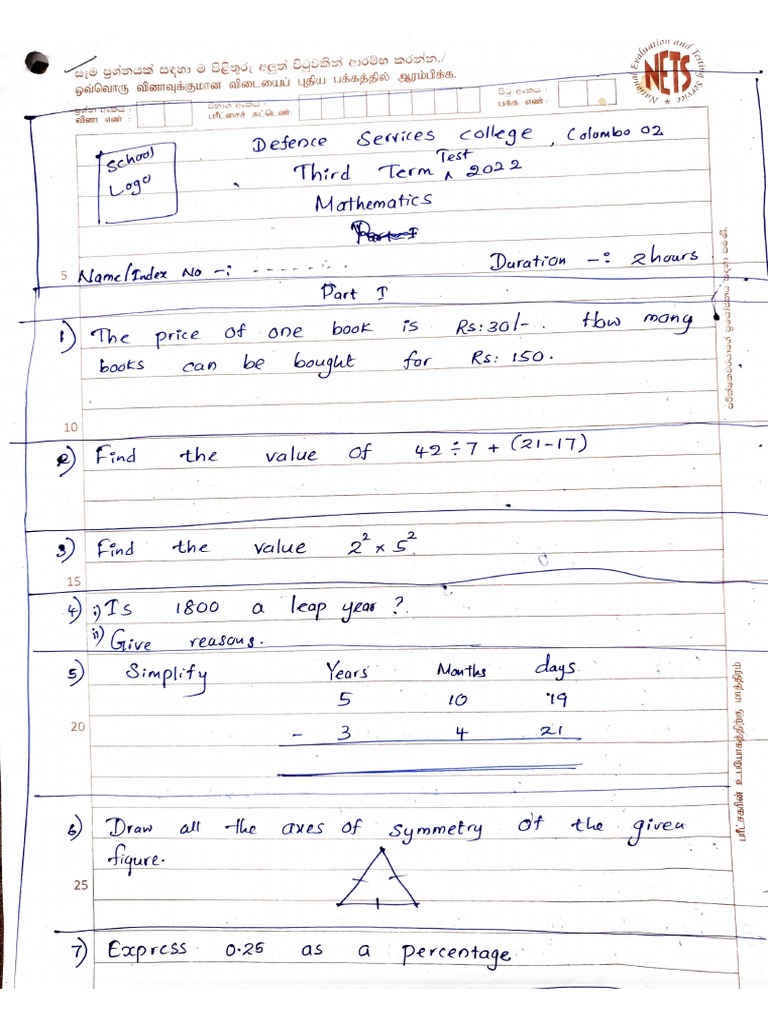 සෑම ප්‍රශ්නයක් සඳහා ම පිළිතුරු අලුත් පිටුවකින් ආරම්භ කරන්න./
ஒவ்வொரு வினாவுக்குமான விடையைப் புதிய பக்கத்தில் ஆரம்பிக்க.
National Evaluation and Testing Service
NETS
ප්‍රශ්න අංකය : විභාග අංකය : පිටු අංකය :
வினா எண் : பரீட்சைச் சுட்டெண்: பக்க எண் :
School
Logo
Defence Services College, Colombo 02
Third Term Test 2022
Mathematics
Part I
5 Name/Index No -: - - - - - - . . Duration -: 2 hours
Part I
1) The price of one book is Rs: 30/-. How many
books can be bought for Rs: 150.
10
2) Find the value of 42 ÷ 7 + (21-17)
3) Find the value 2² × 5²
15
4) i) Is 1800 a leap year?
ii) Give reasons.
5) Simplify Years Months days
5 10 19
20 - 3 4 21
6) Draw all the axes of symmetry of the given
figure.
25
7) Express 0.25 as a percentage
பரீட்சகரின் உபயோகத்திற்கு மாத்திரம்
පරීක්ෂකවරයාගේ ප්‍රයෝජනය සඳහා පමණි.